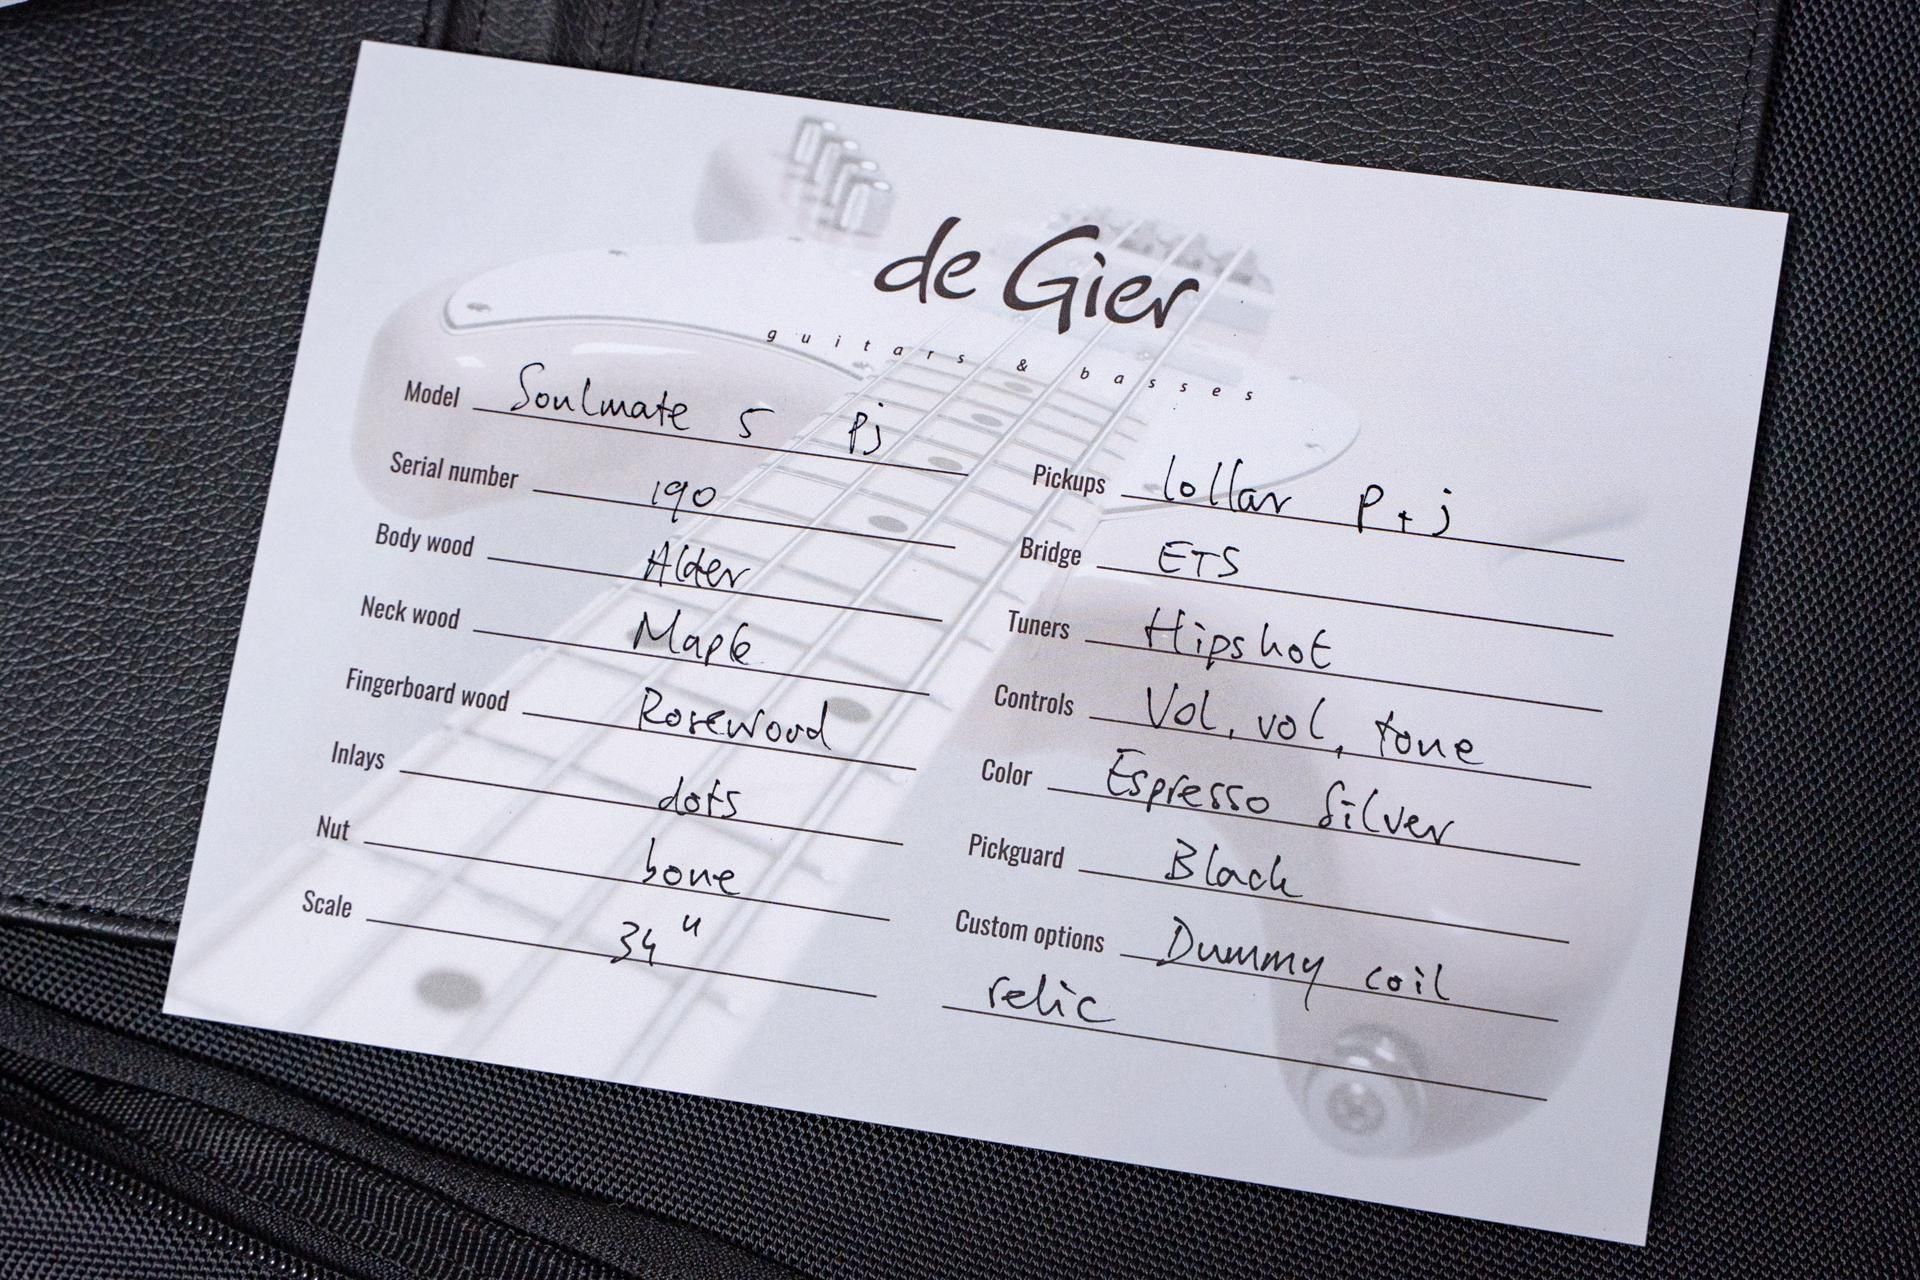 de Gier
guitars & basses
Model Soulmate 5 pj
Serial number 190
Body wood Alder
Neck wood Maple
Fingerboard wood Rosewood
Inlays dots
Nut bone
Scale 34"
Pickups lollar P + j
Bridge ETS
Tuners Hipshot
Controls Vol, vol, tone
Color Espresso Silver
Pickguard Black
Custom options Dummy coil
relic